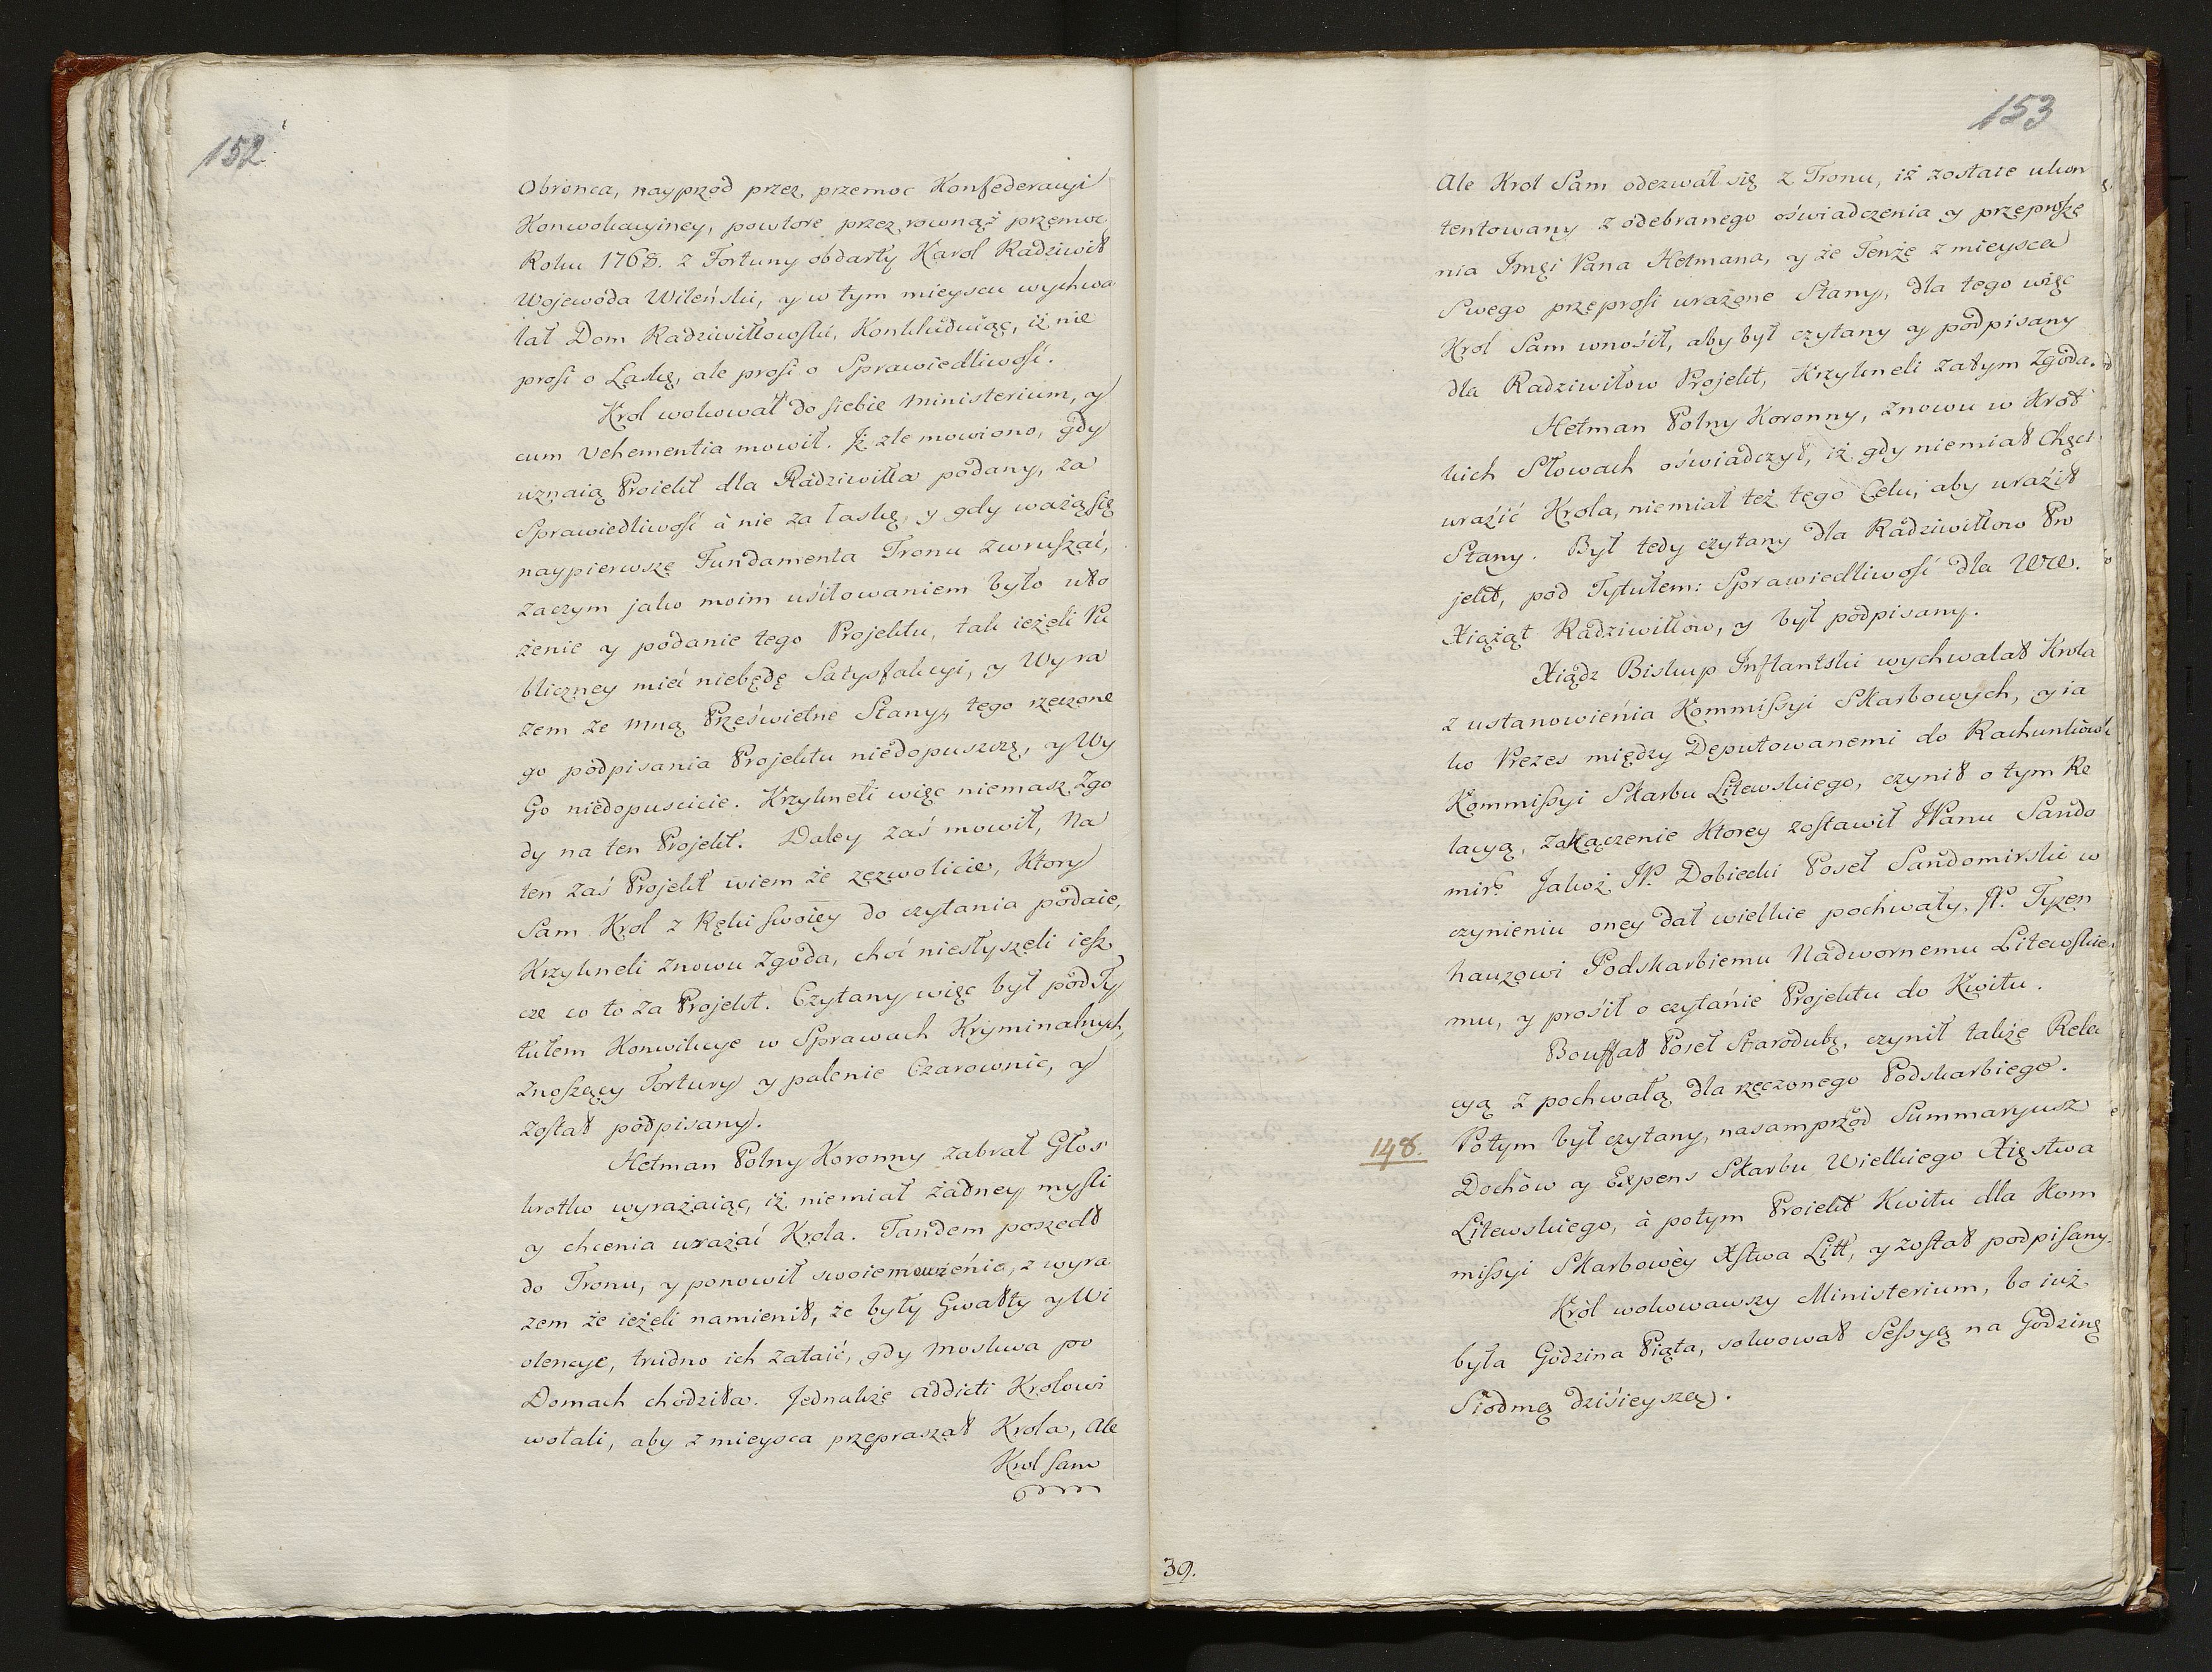 152
Obronca, nayprzod przez przemoc Konfederacyi
Konwokacyiney, powtore przez rownąż przemoc
Roku 1768. z Fortuny obdarty Karol Radziwił
Wojewoda Wileński, y w tym mieyscu wychwa
lał Dom Radziwiłłowski, Konkluduiąc, iż nie
prosi o Łaskę, ale prosi o Sprawiedliwość.
Krol wokował do siebie Ministerium, y
cum Vehementia mowił. Iż zle mowiono, gdy
uznaią Proiekt dla Radziwiłła podany, za
Sprawiedliwość à nie za łaskę, y gdy ważą się
naypierwsze Fundamenta Tronu zwruszać,
zaczym jako moim usiłowaniem było uło
żenie y podanie tego Projektu, tak ieżeli Pu
bliczney mieć niebędę Satysfakcyi, y Wy ra
zem ze mną Prześwietne Stany, tego rzeczone
go podpisania Projektu niedopuszczę, y Wy
Go niedopuscicie. Krzykneli więc niemasz Zgo
dy na ten Projekt. Daley zaś mowił, Na
ten zaś Projekt wiem że zezwolicie, Ktory
Sam Krol z Ręki swoiey do czytania podaie,
Krzykneli znowu Zgoda, choć niesłyszeli iesz
cze co to za Projekt. Czytany więc był pod Ty
tułem Konwikcye w Sprawach Kryminalnych,
znoszący Tortury y palenie Czarownic, y
został podpisany.
Hetman Polny Koronny zabrał Głos
krotko wyrażaiąc, iż niemiał żadney mysli
y chcenia urażać Krola. Tandem poszedł
do Tronu, y ponowił swoie mowienie, z wyra
zem że ieżeli namienił, że były Gwałty y Wi
olencye, trudno ich zataić, gdy Moskwa po
Domach chodziła. Jednakże addicti Krolowi
wołali, aby z mieysca przepraszał Krola, Ale
Krol sam
153
Ale Krol Sam odezwał się z Tronu, iż zostaie ukon
tentowany z odebranego oświadczenia y przeprosze
nia Imći Pana Hetmana, y że Tenże z mieysca
Swego przeprosi urażone Stany, dla tego więc
Krol Sam wnosił, aby był czytany y podpisany
dla Radziwiłow Projekt, Krzykneli zatym Zgoda.
Hetman Polny Koronny, znowu w Krot
kich Słowach oświadczył, iż gdy niemiał Chęci
urazić Krola, niemiał też tego Celu, aby uraził
Stany. Był tedy czytany dla Radziwiłłow Pro
jekt, pod Tytułem: Sprawiedliwość dla Ur.
Xiążąt Radziwiłłow, y był podpisany.
Xiądz Biskup Inflantski wychwalał Krola
z ustanowienia Kommissyi Skarbowych, y ia
ko Prezes między Deputowanemi do Rachunkow
Kommissyi Skarbu Litewskiego, czynił o tym Re
lacyą, zakączenie Ktorey zostawił JPanu Sando
mir? Jakoż JP. Dobiecki Poseł Sandomirski w
czynieniu oney dał wielkie pochwały, JP. Tyzen
hauzowi Podskarbiemu Nadwornemu Litewskie
mu, y prosił o czytanie Projektu do Kwitu.
Bouffał Poseł Starodubs, czynił także Rela
cyą z pochwałą dla rzeczonego Podskarbiego.
148. Potym był czytany, nasamprzod Summaryusz
Dochow y Expens Skarbu Wielkiego Xięstwa
Litewskiego, à potym Proiekt Kwitu dla Kom
missyi Skarbowèy Xstwa Litt, y został podpisany.
Kròl wokowawszy Ministerium, bo iuż
była Godzina Piąta, solwował Sessyą na Godzinę
Siodmą dzisieyszą.
39.